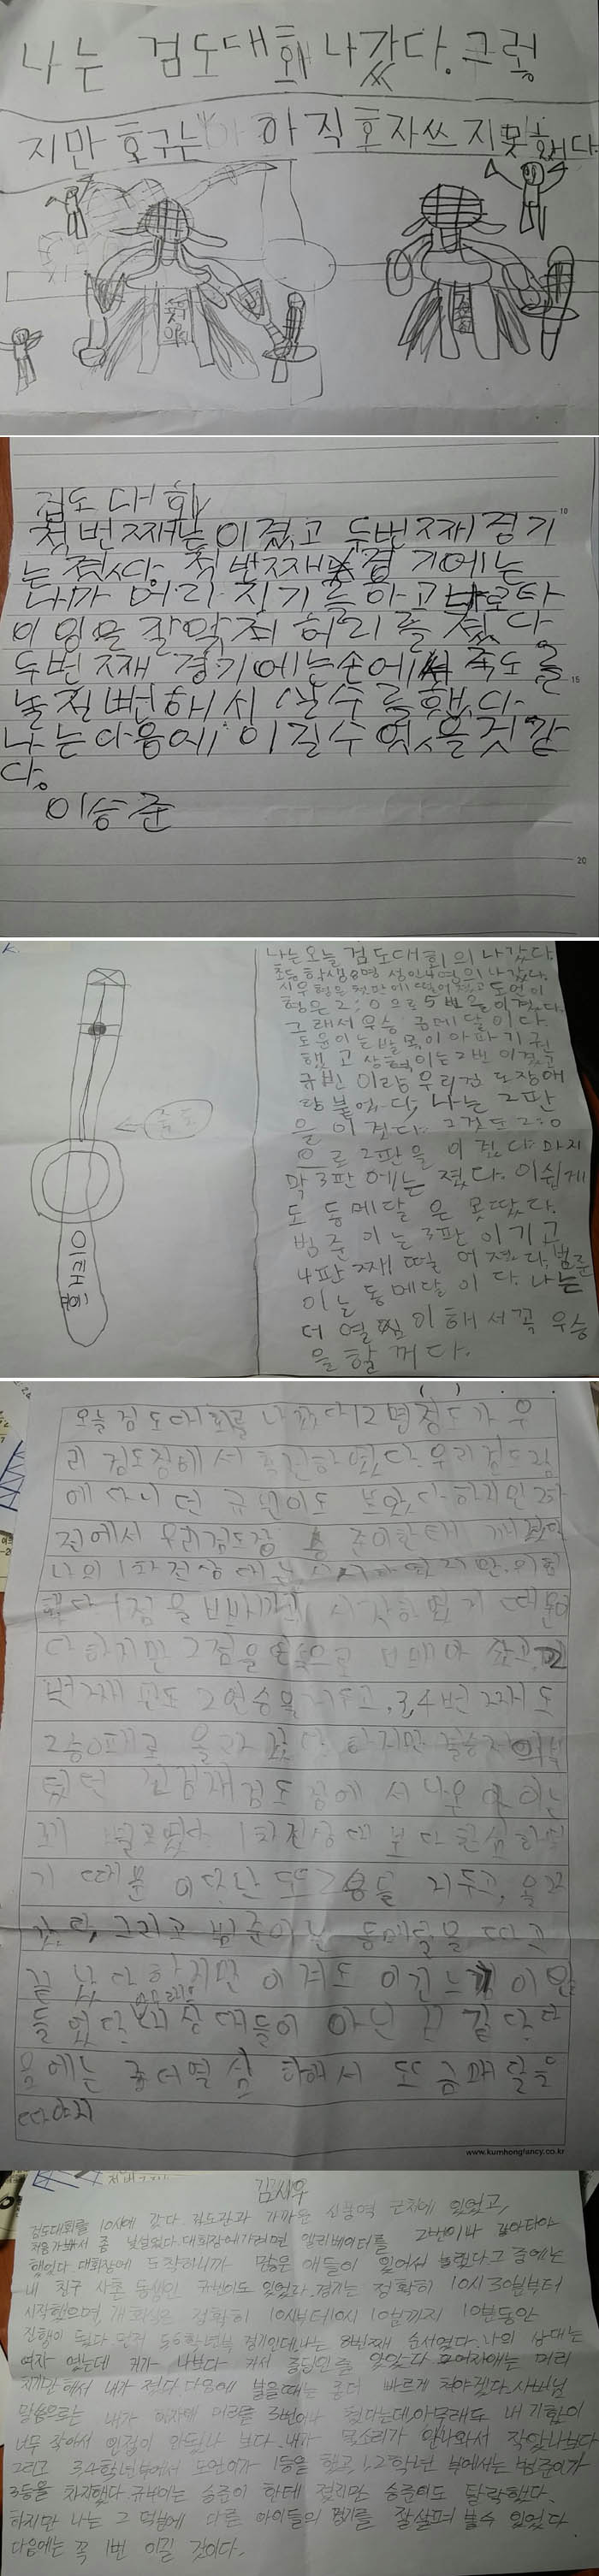 나는 검도대회 나갔다. 그렇
지만 호구는 아직 혼자 쓰지못했다
검도 대회
첫 번째는 이겼고 두번째 경기
는 졌다. 첫 번째 경기에는
내가 머리 치기를 하고 바로 타
이밍을 잘 맞춰 허리를 쳤다
두번째 경기에는 손에서 죽도를
놓쳐 실수를 했다.
나는 다음에 이길수 있을 것 같
다.
이승준
나는 오늘 검도대회의 나갔다.
초등학생8명 성인4명의 나갔다.
시우형은 첫판에 떨어졌고 도언이
형은 2:0으로 5번을 이겼다.
그래서 우승 금메달이다.
도윤이는 발목이 아파 기권
했고 상혁이는 2번 이겼고
규빈이랑 우리검도장애
랑 붙었다. 나는 2판
을 이겼다. 그것도 2:0
으로 2판을 이겼다. 마지
막 3판에는 졌다. 아쉽게
도 동메달은 못땄다.
범준이는 3판 이기고
4판째 떨어졌다. 범준
이는 동메달이다. 나는
더 열씸이해서 꼭 우승
을 할꺼다.
죽도
이태훈
오늘 검도대회를 나갔다 12명정도가 우
리 검도장에서
에 다니던 규빈이도 보았다 하지만 2차
전에서 우리검도장 준이한테
나의 1차전상대는
1점을 시작하였기 때문이
다 하지만 2점을 연속으로
번째 판도 2연승을 거두고, 3,4번째도
2승0패로 하지만
검도장에서 나온
1차전상대보다
기 때문이다 난 또 2승을 거두고,
갔다, 그리고 범준이는 동메달을 따고
끝났다 하지만 이겨도 이긴느낌이 안
들었다 상대들이 아닌 것 같다 다
음에는 좀더열심히해서 또 금메달을
따야지
김시우
검도대회를 10시에 갔다 검도장과 가까운 신풍역 근처에 있었고,
처음가봐서 좀 낯설었다. 대회장에가려면 엘리베이터를 2번이나 갈아타야
했었다 대회장에 도착하니까 많은 애들이 있어서 놀랐다 그 중에는
내 친구 사촌 동생인 규빈이도 있었다. 경기는 정확히 10시30분부터
시작했으며, 개회식은 정확히 10시부터10시 10분까지 10분동안
진행이 됬다 먼저 5,6학년부 경기인데 나는 8번째 순서였다. 나의 상대는
여자 였는데 키가 나보다 커서 중단만을 맞았다 그 여자애는 머리
치기만 해서 내가 졌다 다음에 붙을때는 좀더 빠르게 쳐야겠다. 사범님
말씀으로는 내가 여자애 머리를 3번이나 쳤다는데, 아무래도 내 기합이
너무 작아서 인정이 안됬나 보다. 내가 목소리가 안나와서 작았나보다
그리고 3,4학년부에서 도언이가 1등을 했고, 1,2학년 부에서는 범준이가
3등을 차지했다 규빈이는 승준이 한테 졌지만 승준이도 탈락했다.
하지만 나는 그 덕분에 다른 아이들의 경기를 잘살펴 볼수 있었다.
다음에는 꼭 1번 이길 것이다.
10
15
20
www.kumhongfancy.co.kr